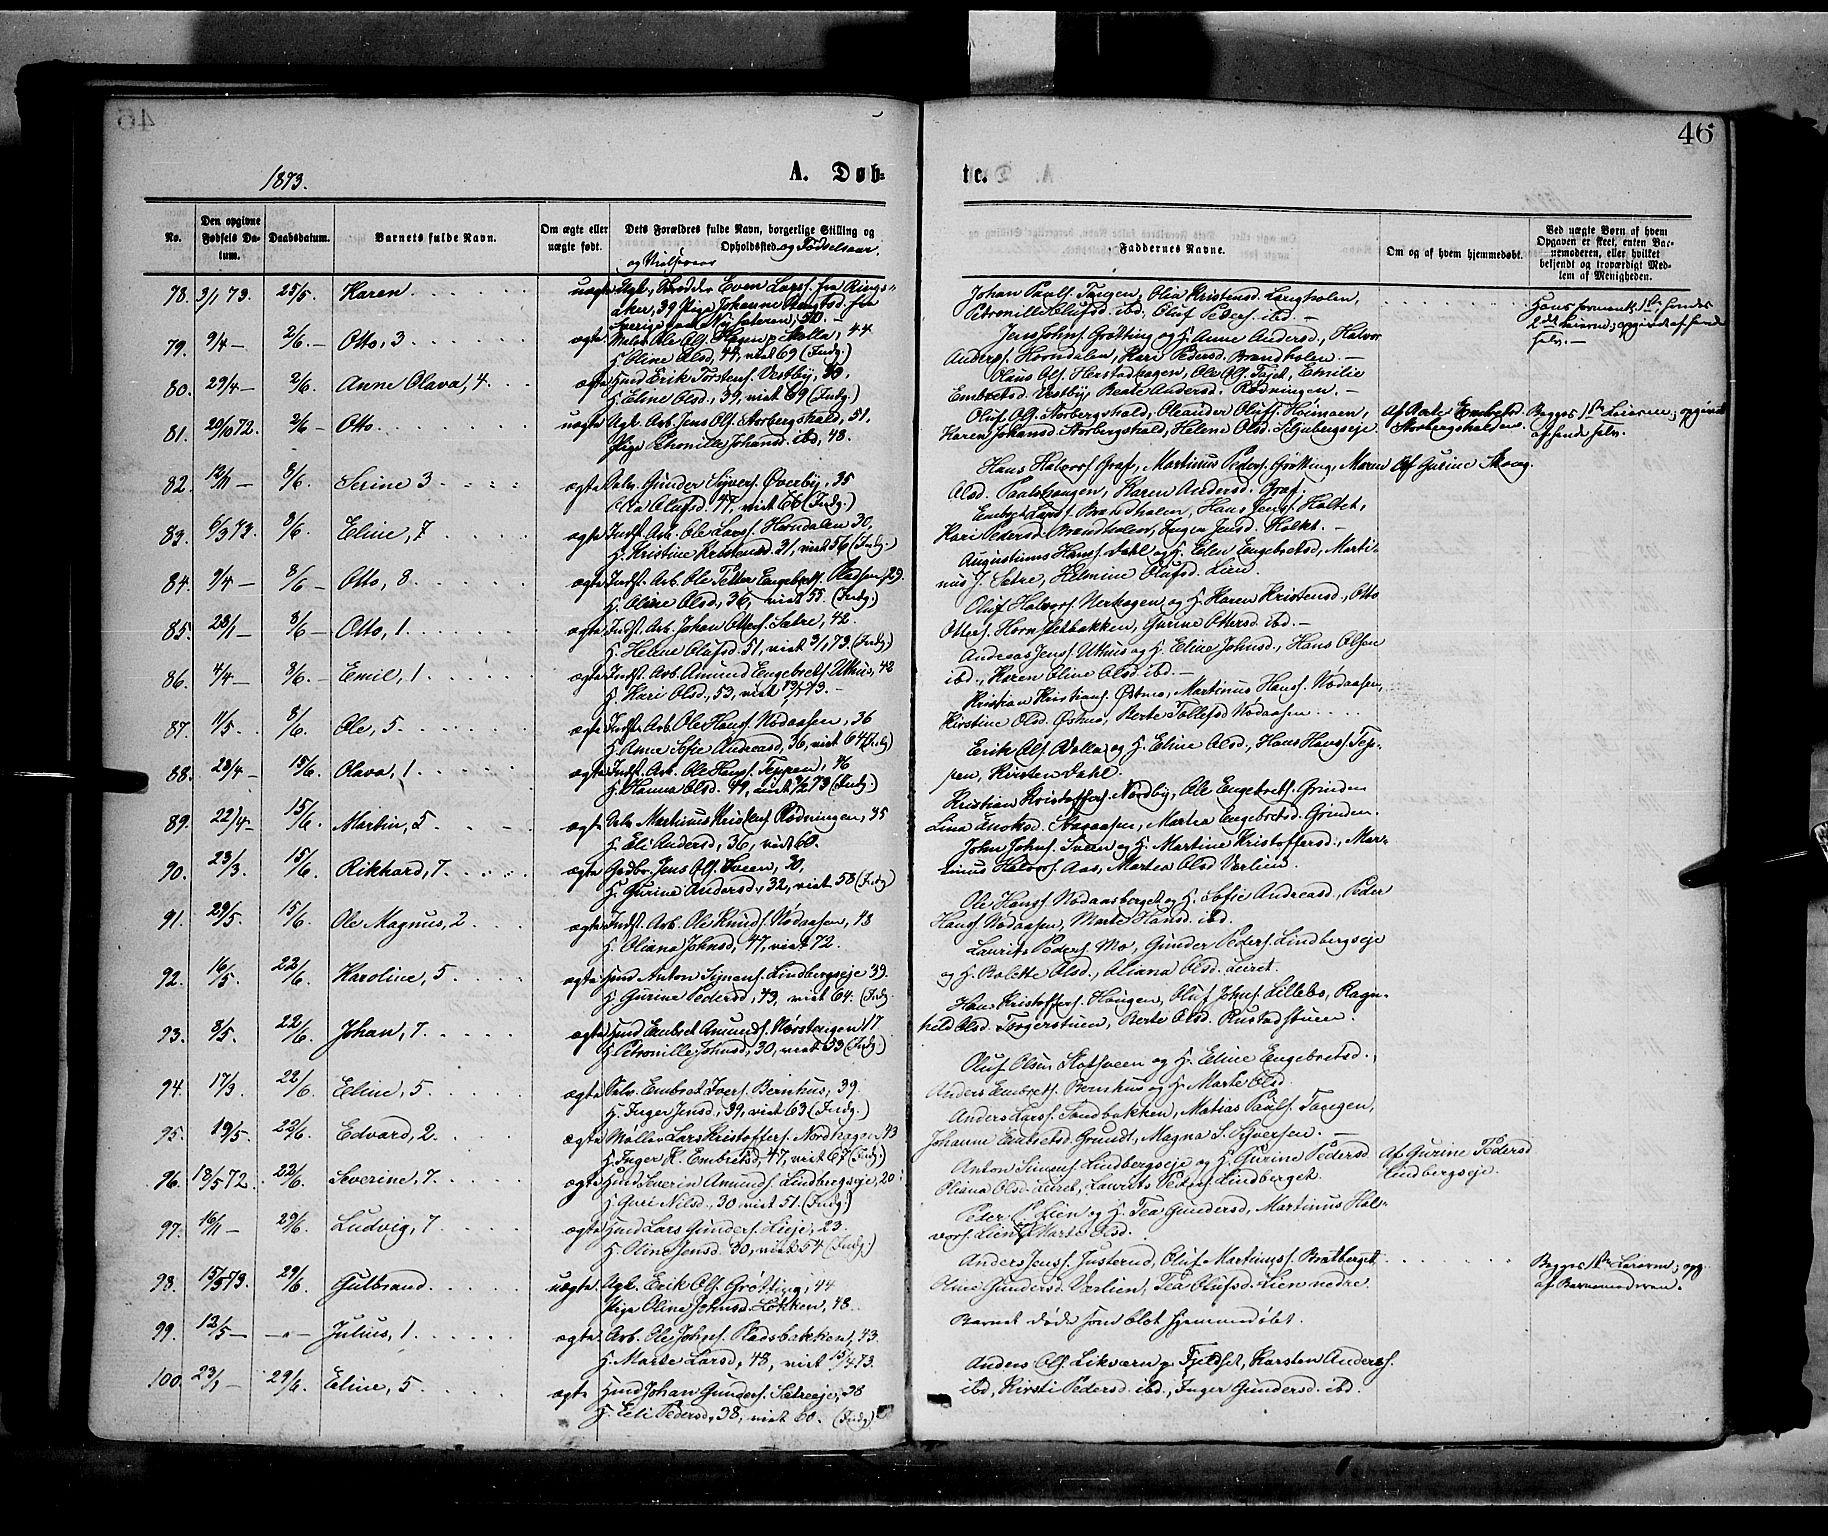 46
1873.
A. Døb-
te.
No.
Den opgivne Fødsels Datum.
Daabsdatum.
Barnets fulde Navn.
Om ægte eller uægte født.
Dets Forældres fulde Navn, borgerlige Stilling og Opholdssted og Fødselsaar. og Vielsesaar
Faddernes Navne.
Om og af hvem hjemmedøbt.
Ved uægte Børn af hvem Opgaven er skeet, enten Barnemoderen, eller hvilket bekjendt og troværdigt Medlem af Menigheden.
78. 3/1 73. 25/5. Karen uægte Ugk. Skrædder Even Larss. fra Rings-
aker, 39 Pige Johanne Bengtsd. fra
Sverige paa Nysæteren, 50.
Johan Paals. Tangen, Olia Kristensd. Langholen,
Petronille Olufsd. ibd. Oluf Peders. ibd.
Hans formentl. 1ste hendes
2det Leierm.; opgivet af hende
selv.
79. 9/4 — 2/6. — Otto, 3 ægte Ole Ols. Hagen p. Skolla, 44
H. Oline Olsd., 44, viet 69 (Indg.)
Jens Johns. Grøtting og H. Anne Andersd., Halvor
Anders. Horndalen, Kari Pedersd. Brandholen.
80. 29/4 — 2/6. Anne Olava, 4 ægte Huusm. Erik Torstens. Vestby, 30,
H. Eline Olsd., 39, viet 69 (Indg.)
Olaus Ols. Herstadhagen, Ole Ols. Faset, Emilie
Embretsd. Vestby, Beate Andersd. Rødningen.
81. 20/10 72. 2/6 — Otto uægte Ugk. Arb. Jens Ols. Storbergshald, 51,
Pige Petronille Johansd. ibd., 48.
Oluf Ols. Storbergshald, Oleander Olufs. Hoimoen,
Karen Johansd. Storbergshald, Helene Olsd. Siljubergseje
Af Marte Embretsd.
Storbergshalden.
Begges 1ste Leierm.; opgivet
af hende selv.
82. 12/11 — 3/6. Serine 3 ægte Selv. Gunder Syvers. Øverby, 35
Olea Olufsd. 47, viet 66 (Indg.)
Hans Halvors. Graf, Martinus Peders. Grøtting, Maren
Olsd. Paalstangen, Karen Andersd. Graf.
Af Gurine Skoog.
83. 6/3 73. 3/6. Eline, 7 ægte Indst. Arb. Ole Larss. Horndalen 30,
H. Kristine Kristensd. 31, viet 56 (Indg.)
Embret Larss. Brandholen, Hans Jenss. Holtet,
Kari Pedersd. Brandholen, Inger Jensd. Holtet.
84. 9/4 — 8/6 — Otto, 8. ægte Indst. Arb. Ole Petter Engebrets. Pladsen, 29.
H. Oline Olsd., 36, viet 55. (Indg.)
Augustinus Hanss. Dahl og H. Elen Engebretsd., Marti-
nus J. Sætre, Helmine Olufsd. Lien.
85. 28/1 8/6 — Otto, 1. ægte Indst. Arb. Johan Otters. Sætre, 42.
H. Helene Olufsd. 51, viet 3/1 73. (Indg.)
Oluf Halvors. Nerhagen og H. Karen Kristensd., Otto
Otters. Hornsletbakken, Gurine Ottersd. ibd.
86. 4/4 — 8/6. — Emil, 1 ægte Indst. Arb. Amund Engebrets. Uthus, 42
H. Kari Olsd., 53, viet 73.
Andreas Jenss. Uthus og H. Eline Johnsd., Hans Olsen
ibd., Karen Oline Olsd. ibd.
87. 11/5. 8/6. Ole, 5 ægte Indst. Arb. Ole Hanss. Nødaasen, 36
H. Anne Sofie Andreasd., 36, viet 64 (Indg.)
Kristian Kristians. Østmo, Martinus Hanss. Nødaasen,
Kirstine Olsd. Østmo, Berte Tollefsd. Nødaasen
88. 23/4 — 15/6. Olava, 1 ægte Indst. Arb. Ole Hanss. Teppen, 46
H. Hanna Olsd. 49, viet 73 (Indg.)
Erik Ols. Volla og H. Eline Olsd., Hans Hanss. Tep-
pen, Kirsten Dahl.
89. 22/4 — 15/6. Martin, 5. ægte Selv. Martinus Kristens. Rødningen, 35
H. Eli Andersd., 36, viet 60.
Kristian Kristoffers. Nordby, Ole Engebrets. Grinden
Lina Enoksd. Stavaasen, Martea Engebretsd. Grinden.
90. 23/3. 15/6. Rikhard, 7. ægte Gdbr. Jens Ols. Sveen, 30,
H. Gurine Andersd., 32, viet 58 (Indg)
John Johns. Sveen og H. Martine Kristoffersd., Mar-
tinus Halvors. Aas, Martea Olsd. Værlien.
91. 29/5. 15/6. Ole Magnus, 2 ægte Indst. Arb. Ole Knuds. Nødaasen, 43
H. Oliana Johnsd., 47, viet 72.
Ole Hanss. Nødaasberget og H. Sofie Andreasd., Peder
Hanss. Nødaasen, Marte Hansd. ibd.
92. 16/5. 22/6. Karoline, 5 ægte Husmd. Anton Simens. Lindbergseje 39.
H. Gurine Pedersd., 43, viet 64. (Indg.
Laurits Peders. Mo, Gunder Peders. Lindbergseje
og H. Bolette Olsd., Oliana Olsd. Lunet.
93. 8/5. 22/6. Johan, 7. ægte Husmd. Embret Amunds. Nørstangen 17
H. Petronille Johnsd., 30, viet 53 (Indg.)
Hans Kristoffers. Haugen, Oluf Johns. Lillebo, Ragn-
hild Olsd. Torgerstuen, Berte Olsd. Rustadstuen.
94. 17/3. 22/6. Eline, 5. ægte Selv. Embret Ivers. Bernhus, 39
H. Inger Jensd., 39, viet 63 (Indg.)
Oluf Olsen Slotsveen og H. Eline Engebretsd.,
Anders Embrets. Bernhus og H. Marte Olsd.
95. 19/5. 22/6. Edvard, 2. ægte Møller Lars Kristoffers. Nordhagen, 43
H. Inger K. Embretsd., 47, viet 67 (Indg.)
Anders Larss. Sandbakken, Matias Paals. Tangen,
Johanne Embretsd. Grundt, Magna S. Syversen.
96. 18/5 72. 22/6. Severine, 7. ægte Husmd. Severin Amunds. Lindbergseje, 20
H. Guri Nilsd., 30 viet 51. (Indg.)
Anton Simens. Lindbergseje og H. Gurine Pedersd.
Oliana Olsd. Lunet, Laurits Peders. Lindberget.
Af Gurine Pedersd.
Lindbergseje.
97. 16/11 — 29/6. Ludvig, 7 ægte Husmd. Lars Gunders. Lieje, 23.
H. Oline Jensd. 30, viet 54 (Indg.)
Peder P. Lien og H. Tea Gundersd., Martinus Hal-
vors. Lien, Marte Olsd.
98. 15/5 73. 29/6. Gulbrand uægte Ugk. Erik Ols. Grøtting, 44
Pige Oline Johnsd. Løkken, 48.
Anders Jenss. Justerud, Oluf Martinuss. Bratberget.
Oline Gundersd. Værlien, Tea Olufsd. Lien nedre
Begges 1ste Leierm.; opg.
af Barnemoderen.
99. 12/5 — — " — Julius, 1. ægte Arb. Ole Johns. Pladsbakken, 43.
H. Marte Larsd., 48, viet 15/4 73.
Barnet døde som blot hjemmedøbt.
100. 23/3 — 29/6. Eline, 5. ægte Husmd. Johan Gunders. Sætreeje, 38
H. Eli Pedersd., 38, viet 60. (Indg.)
Anders Ols. Likværn p. Fjeldset, Karsten Anders.
ibd., Kirsti Pedersd. ibd., Inger Gundersd. ibd.